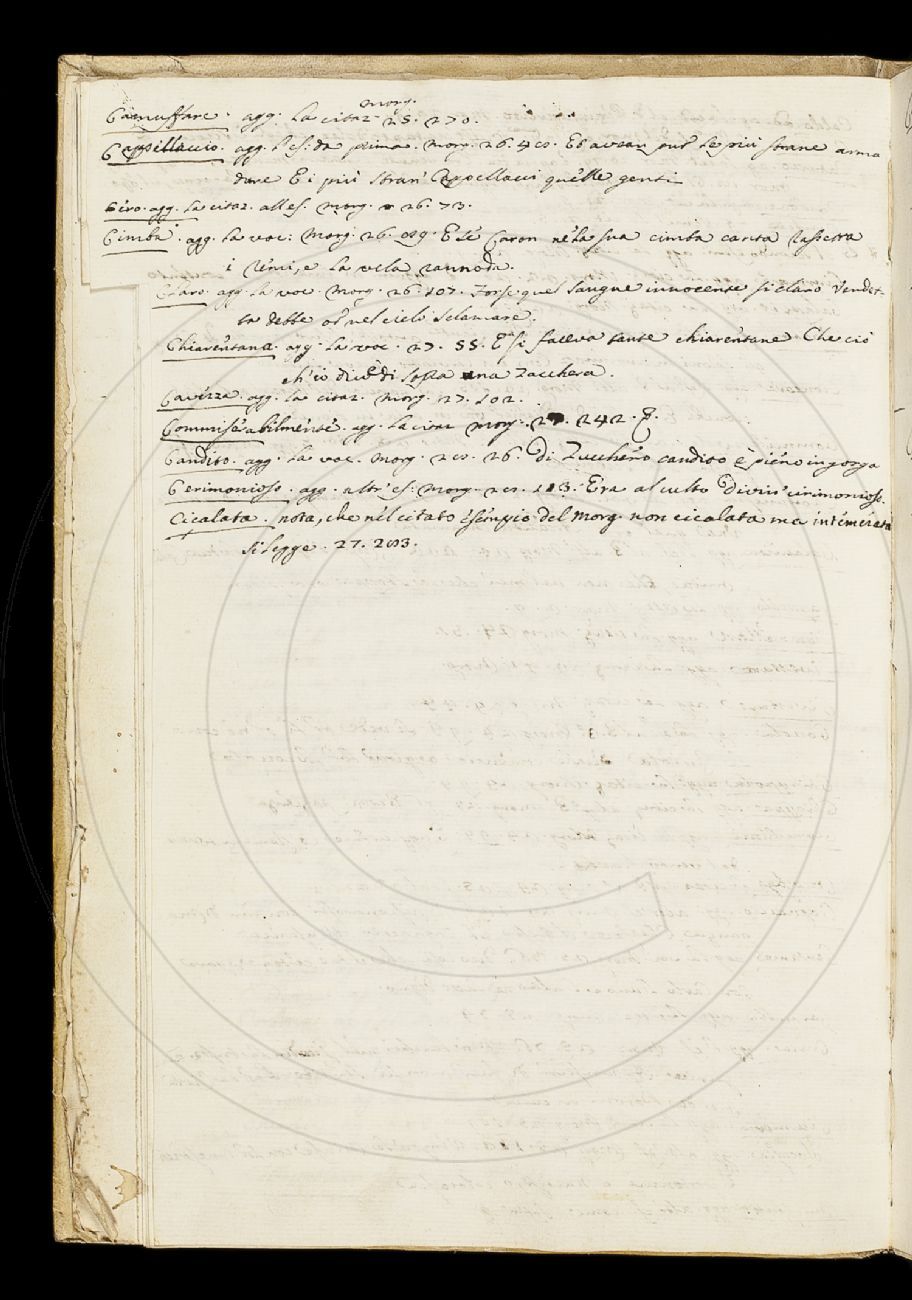 Camuffare. agg. la citaz. morg. 25. 270.
Cappellaccio. agg. l'es. da prima. Morg. 26. 40. Et avean pur le più strane arma
dure E i più stran Cappellacci quelle genti
Ciro. agg. la citaz. all es. Morg. 26. 73.
Cimba. agg. la voc: Morg. 26. 89. E se Caron ne la sua cimba canta Rassetta
i remi, e la vela rannoda.
Claro. agg. la voc. Morg. 26. 107. Forse quel sangue innocente sì claro Vendet-
ta debbe or nel cielo sclamare.
Chiarentana. agg. la voc. 27. 55. E si faceva tante chiarentane Che ciò
ch'io dico è di sopra una zacchera.
Cavezza. agg. la citaz. Morg. 27. 102.
Commiserabilmente. agg. la citaz. Morg. 27. 242.
Candito. agg. la voc. Morg. 28. 26. Di Zucchero candito è pieno in gorga
Cerimonioso. agg. altr'es. Morg. 28. 113. Era al culto Divin cirimonioso.
Cicalata. nota, che nel citato esempio del Morg. non cicalata ma intemerata
si legge. 27. 203.